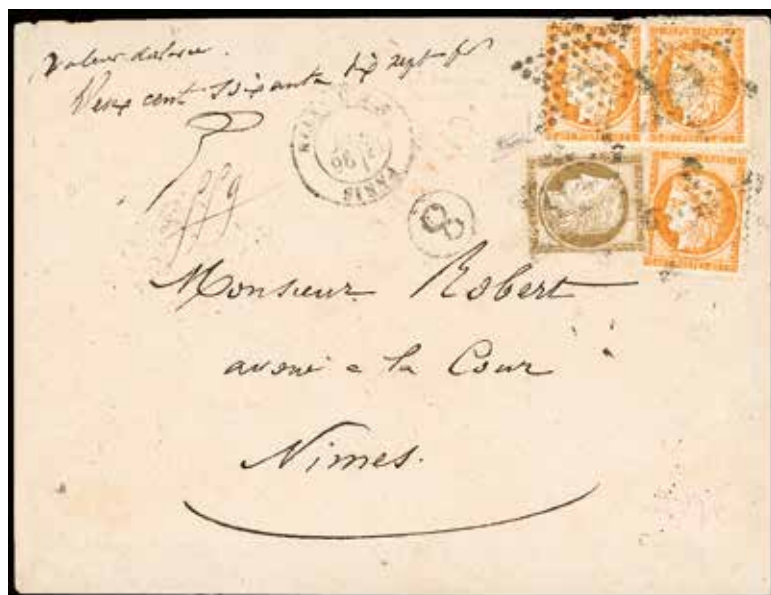 Valeur déclarée.
Deux cent soixante dix sept fr
8
Monsieur Robert
avoué à la Cour
Nimes.